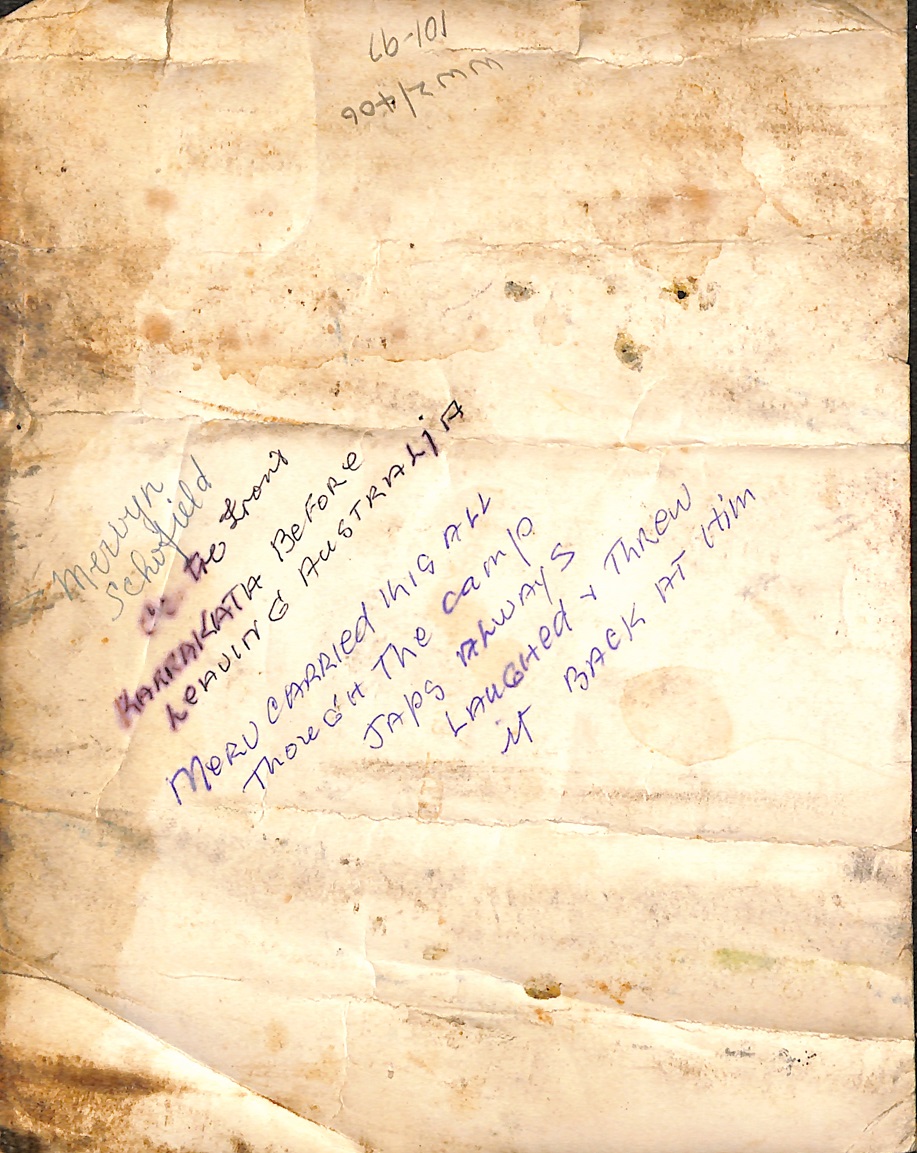 WW2/406
101-97
Mervyn
Schofield
the front
KARRAKATA BEFORE
LEAVING AUSTRALIA
MERV CARRIED THIS ALL
THOUGH THE CAMP
JAPS ALWAYS
LAUGHED + THREW
it BACK AT HIM